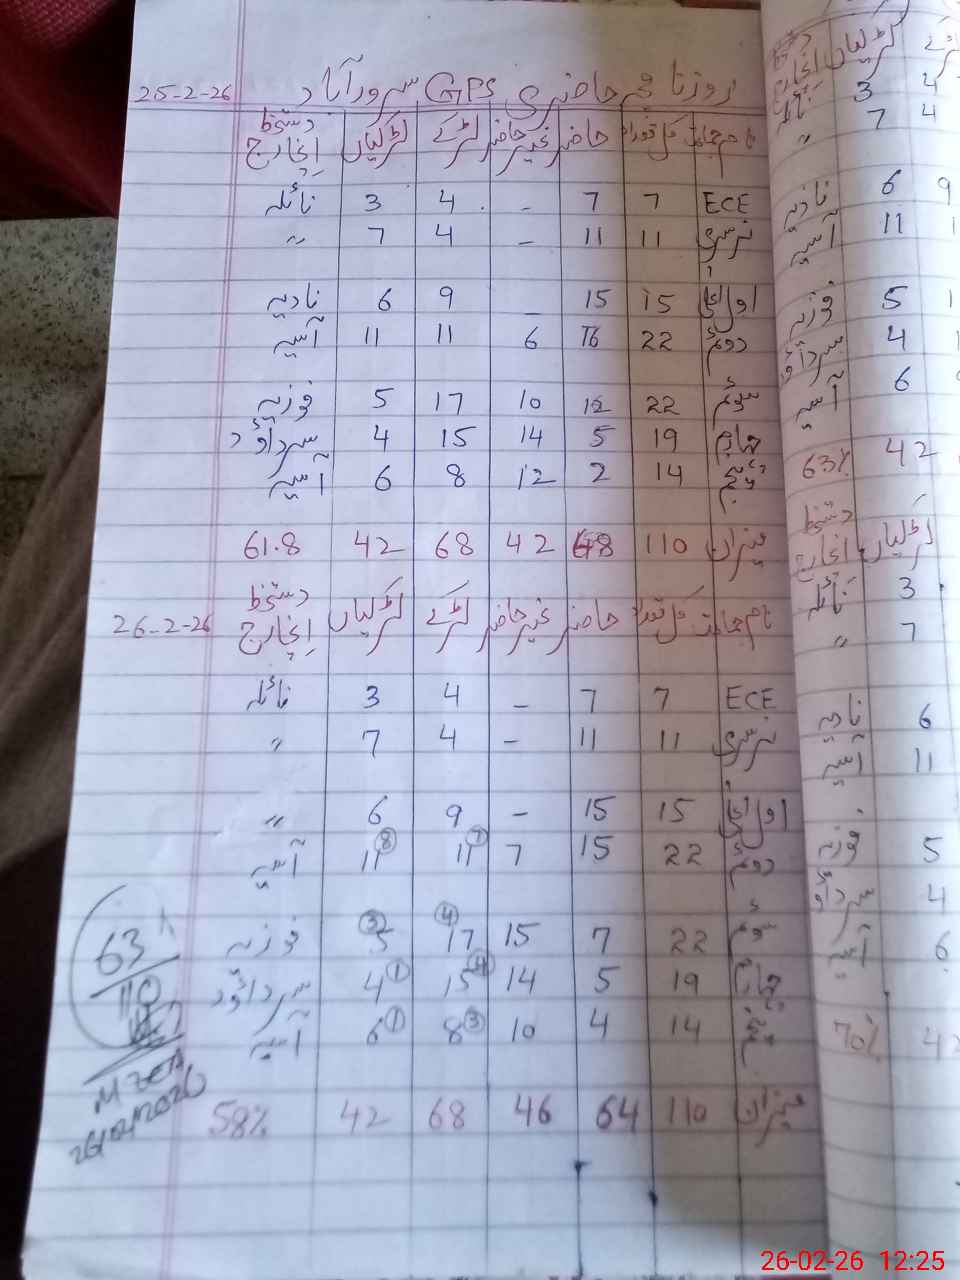 روزنامچہ حاضری GPS سرور آباد 25-2-26
نام جماعت کل تعداد حاضر غیر حاضر لڑکے لڑکیاں دستخط انچارج
ECE 7 7 - 4 3 نائلہ
نرسری 11 11 - 4 7 〃
اول 15 15 - 9 6 نادیہ
دوئم 22 16 6 11 11 آسیہ
سوئم 22 12 10 17 5 فوزیہ
چہارم 19 5 14 15 4 سر داؤد
پنجم 14 2 12 8 6 آسیہ
میزان 110 68 42 68 42 61.8
26-2-26 نام جماعت کل تعداد حاضر غیر حاضر لڑکے لڑکیاں دستخط انچارج
ECE 7 7 - 4 3 نائلہ
نرسری 11 11 - 4 7 〃
اول 15 15 - 9 6 〃
دوئم 22 15 7 11 7 11 8 آسیہ
سوئم 22 7 15 17 4 5 3 فوزیہ
چہارم 19 5 14 15 4 1 سر داؤد
پنجم 14 4 10 8 3 6 1 آسیہ
میزان 110 64 46 68 42 58%
63
110
26/02/2026
4 3 نائلہ
4 7 〃
9 6 نادیہ
11 آسیہ
5 فوزیہ
4 سر داؤد
6 آسیہ
42 63%
لڑکیاں دستخط انچارج
3 نائلہ
7 〃
6 نادیہ
11 آسیہ
5 فوزیہ
4 سر داؤد
6 آسیہ
42 70%
26-02-26 12:25